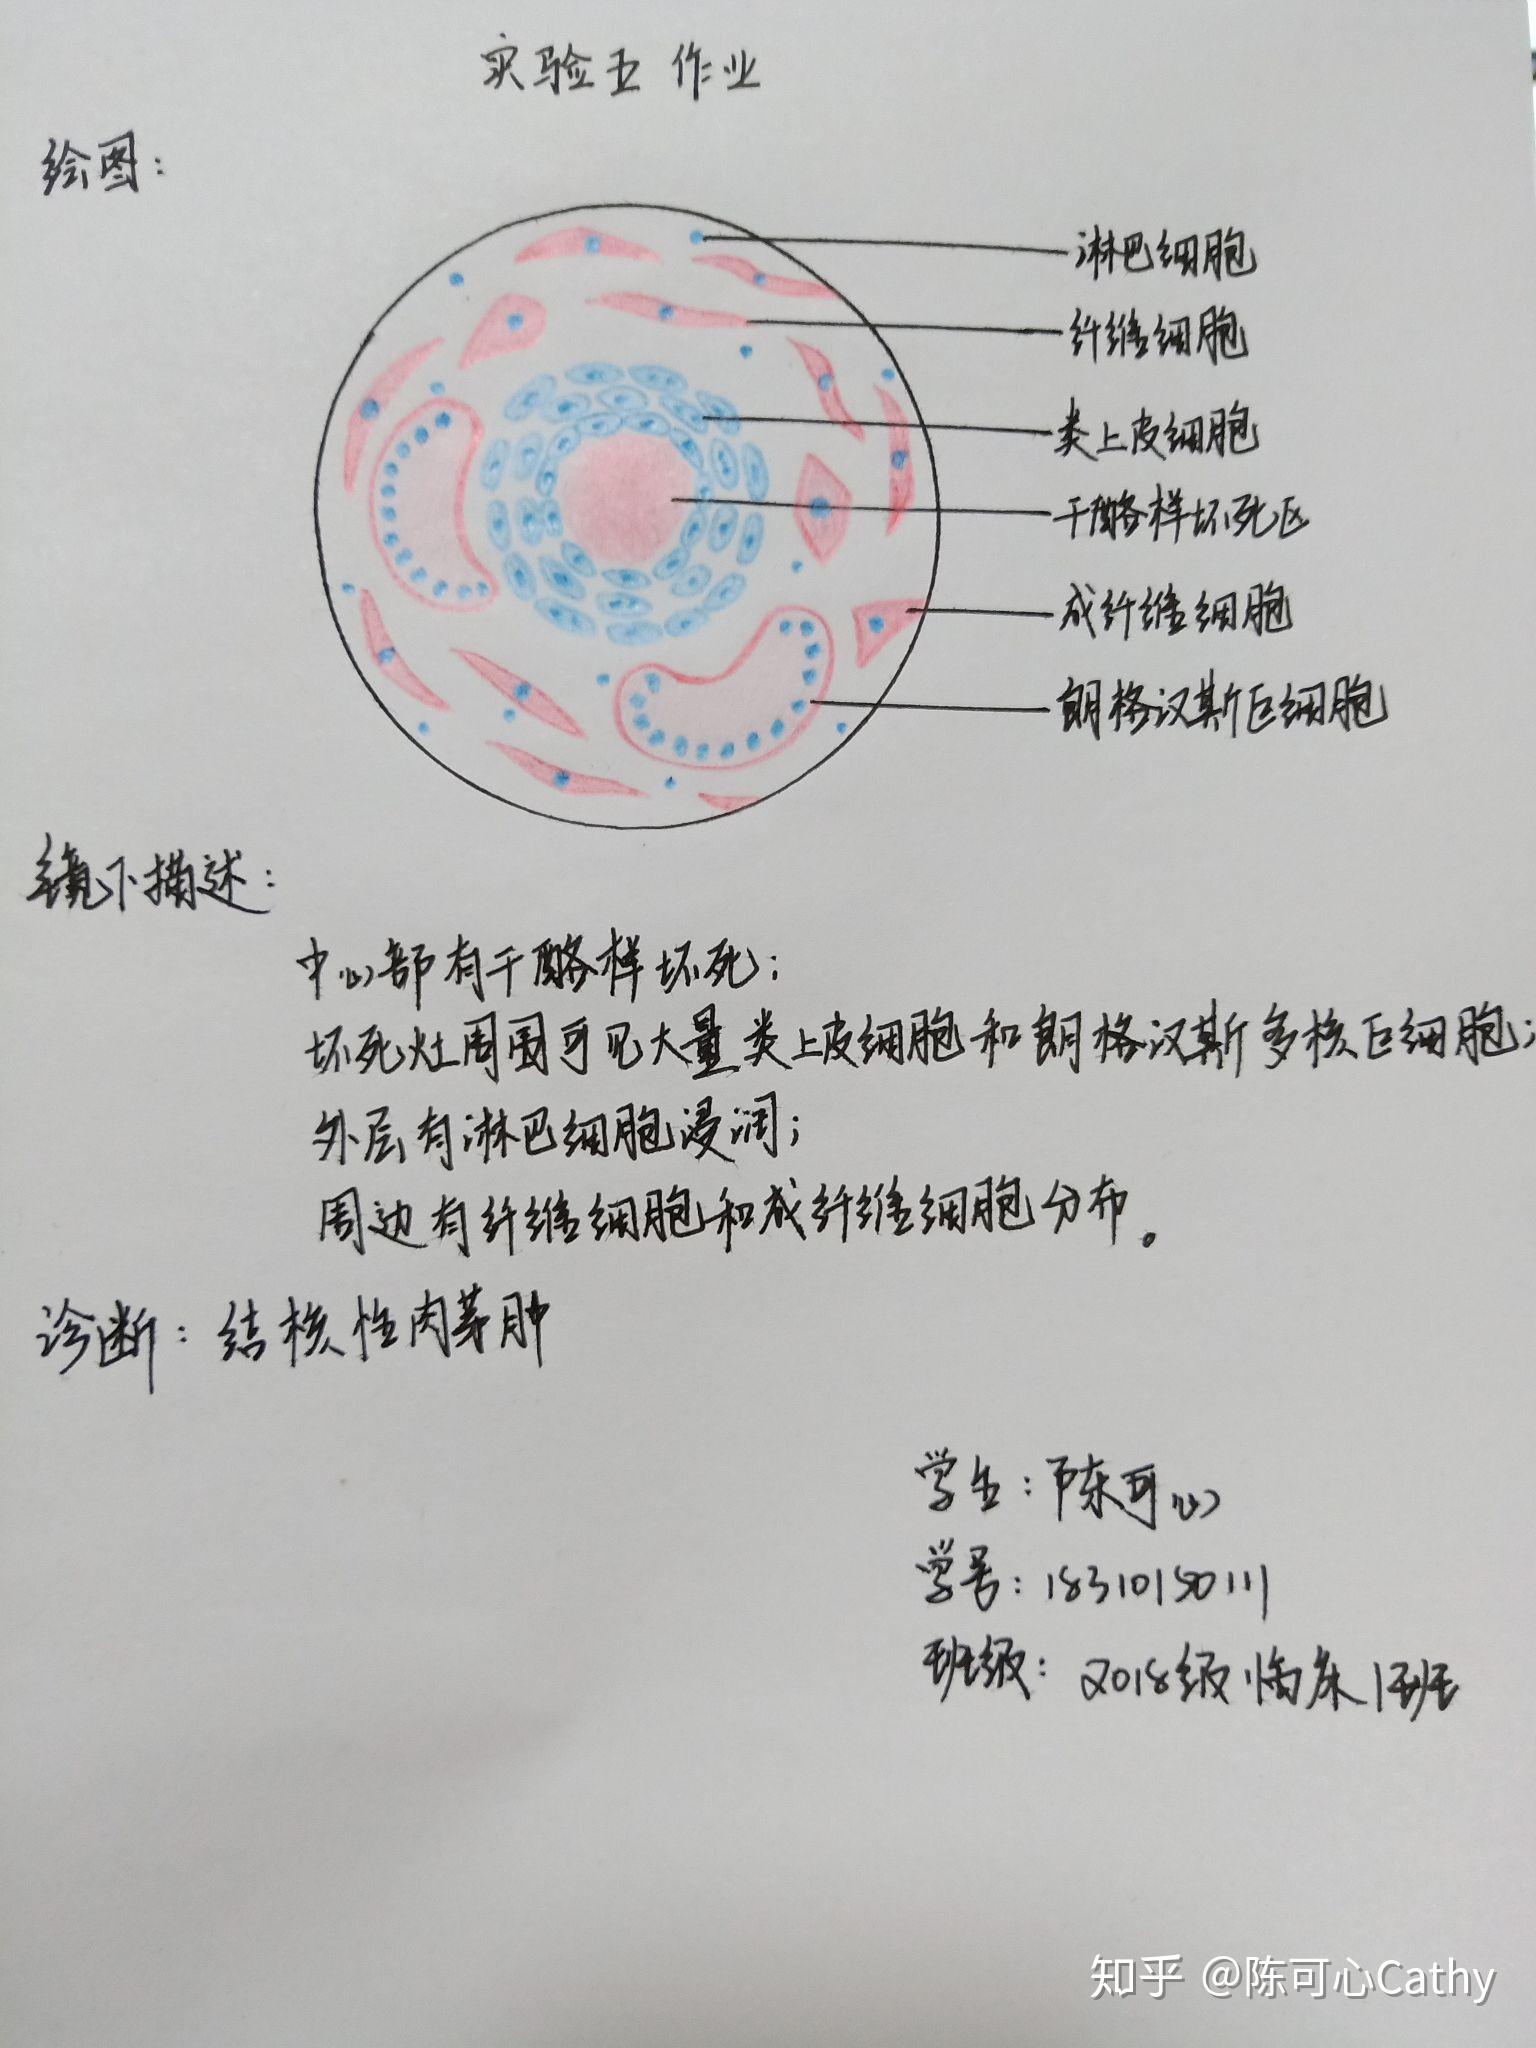 实验五 作业
绘图：
淋巴细胞
纤维细胞
类上皮细胞
干酪样坏死区
成纤维细胞
朗格汉斯巨细胞
镜下描述：
中心部有干酪样坏死；
坏死灶周围可见大量类上皮细胞和朗格汉斯多核巨细胞；
外层有淋巴细胞浸润；
周边有纤维细胞和成纤维细胞分布。
诊断：结核性肉芽肿
学生：陈可心
学号：18310150111
班级：2018级临床1班
知乎 @陈可心Cathy